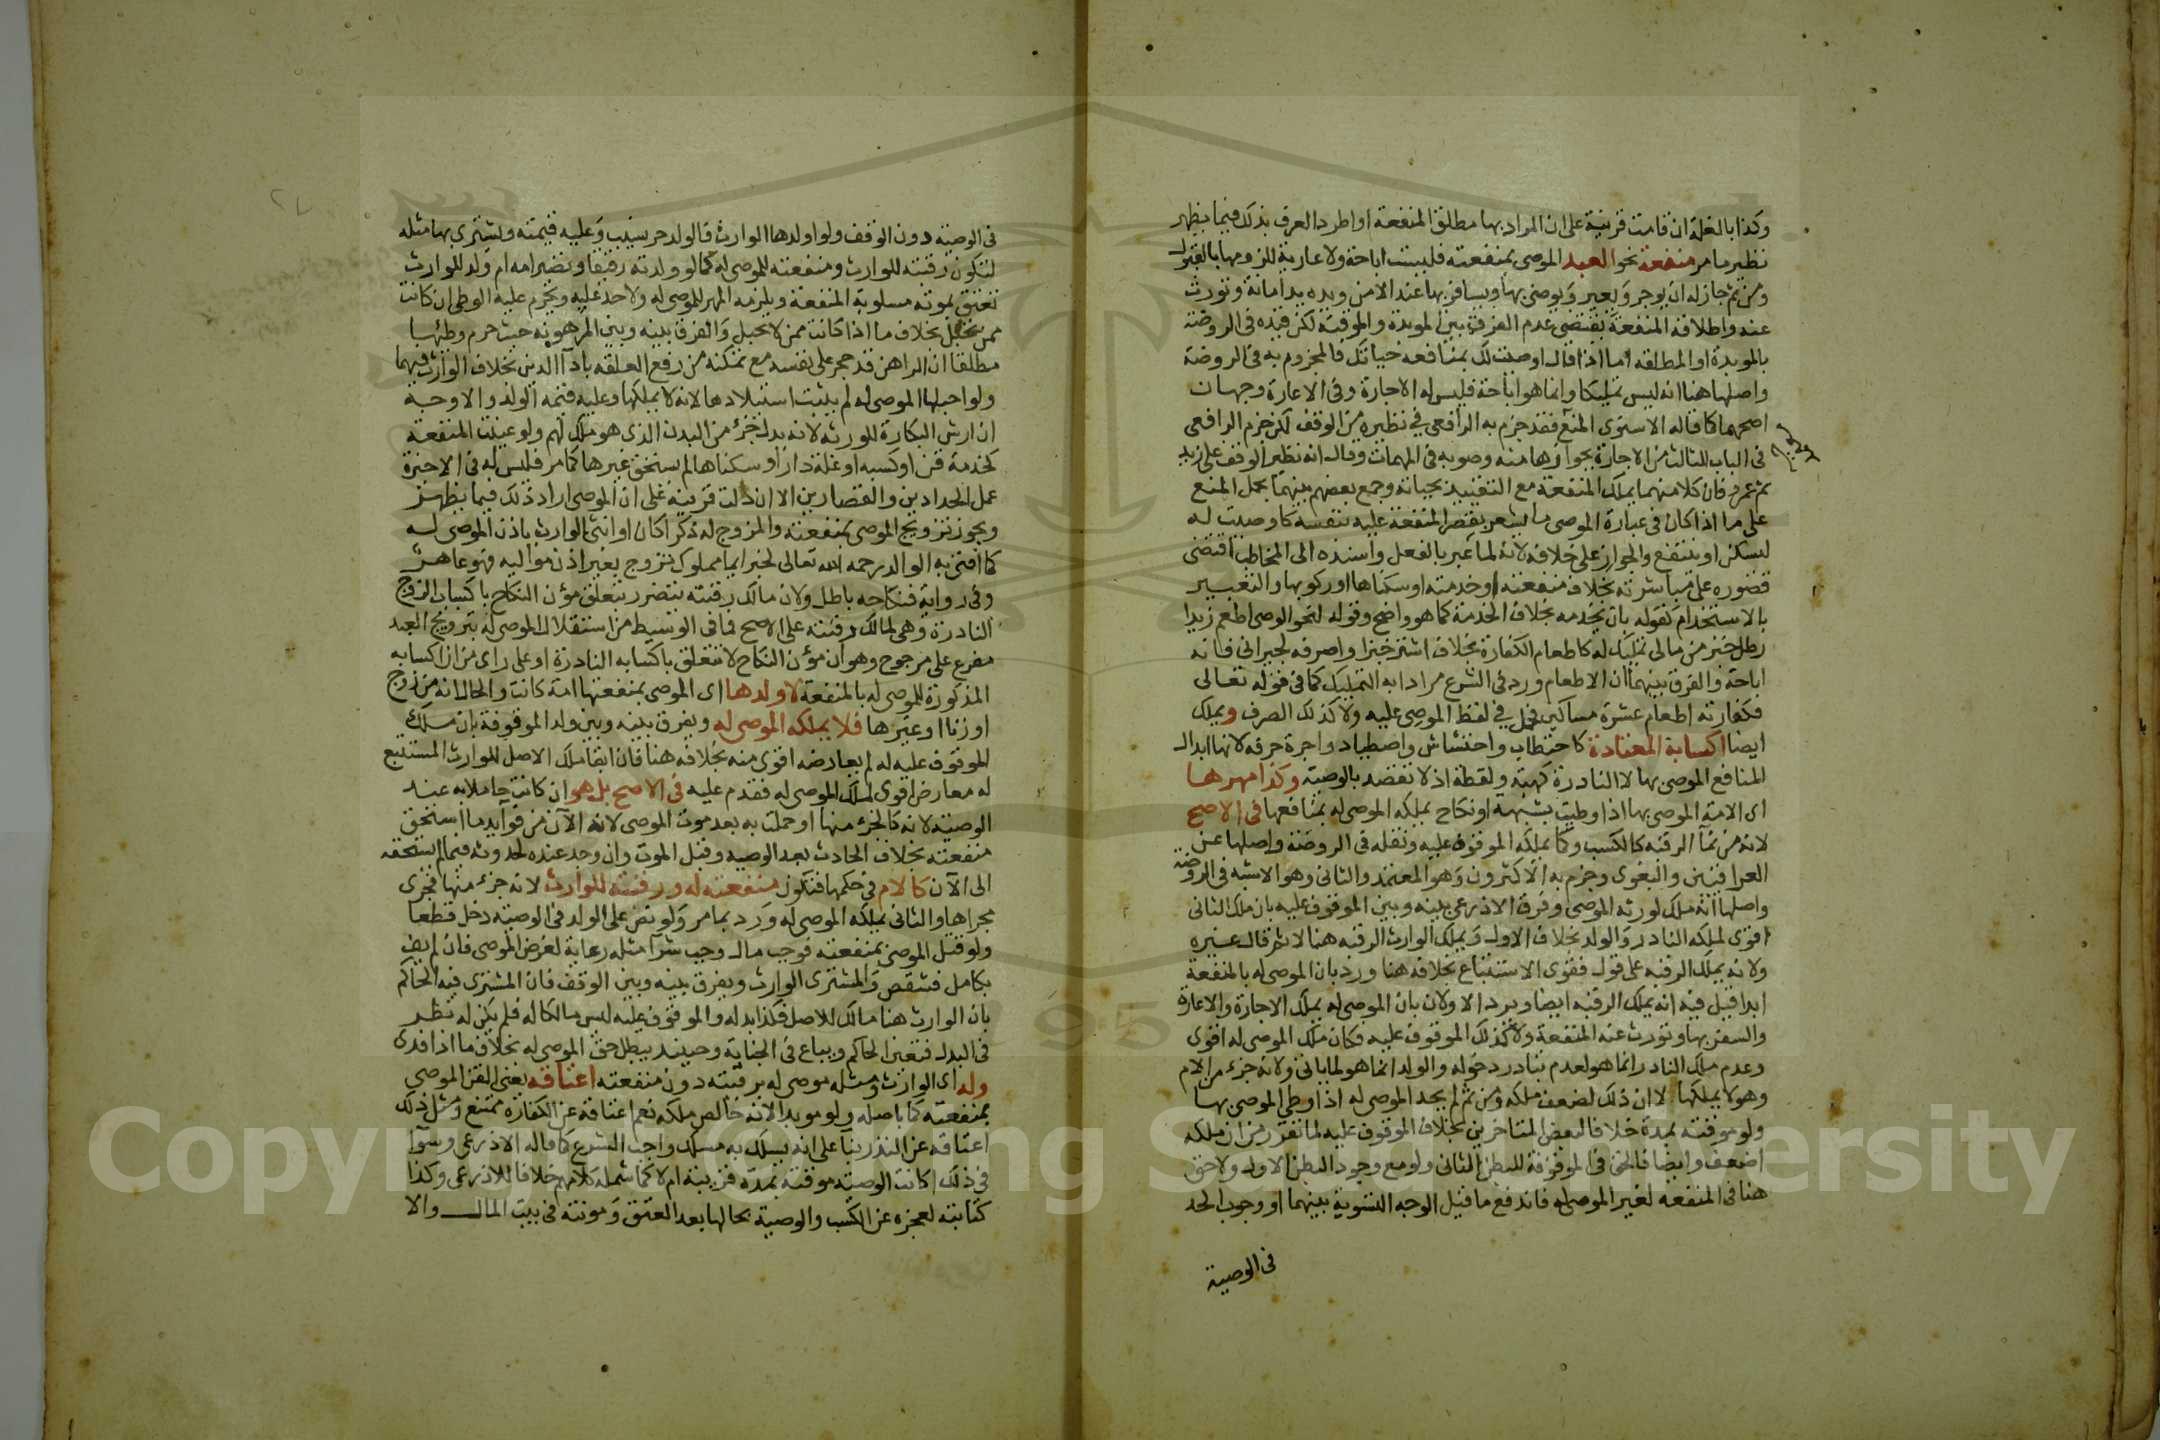 وكذا بالغلة ان قامت قرينة على ان المراد بها مطلق المنفعة او اطرد العرف بذلك فيما يظهر
نظير ما مر منفعة نحو العبد الموصى بمنفعته فليست اباحة ولا عارية للزومها بالقبول
ومن ثم جاز له ان يوجر ويعير ويوصى بها ويسافر بها عند الامن ويده يد امانة وتورث
عنه واطلاقه المنفعة يقتضى عدم الفرق بين الموبدة والموقتة لكن قيده فى الروضة
بالموبدة او المطلقه اما اذا قال اوصيت لك بمنافعه حياتك فالمجزوم به فى الروضة
واصلها هنا انه ليس تمليكا وانما هو اباحة فليس له الاجارة وفى الاعارة وجهان
اصحهما كما قاله الاسنوى المنع فقد جزم به الرافعى فى نظيره من الوقف لكن جزم الرافعى
فى الباب الثالث من الاجارة بجوازها منه وصوبه فى المهمات وقال انه نظير الوقف على زيد
ثم عمرو فان كلا منهما يملك المنفعة مع التقييد بحياته وجمع بعضهم بينهما بحمل المنع
على ما اذا كان فى عبارة الموصى ما يشعر بقصر المنفعة عليه بنفسه كاوصيت له
ليسكن او ينتفع والجواز على خلافه لانه لما عبر بالفعل واسنده الى المخاطب اقتضى
قصوره على مباشرته بخلاف منفعته او خدمته او سكناها او ركوبها والتعبير
بالاستخدام كقوله بان يخدمه بخلاف الخدمة كما هو واضح وقوله لنحو الوصى اطعم زيدا
رطل خبز من مالى تمليك له كاطعام الكفارة بخلاف اشتر خبزا واصرفه لجيرانى فانه
اباحة والفرق بينهما ان الاطعام ورد فى الشرع مرادا به التمليك كما فى قوله تعالى
فكفارته اطعام عشرة مساكين فحمل فى لفظ الموصى عليه ولا كذلك الصرف ويملك
ايضا اكسابه المعتادة كاحتطاب واحتشاش واصطياد واجرة حرفه لانها ابدال
المنافع الموصى بها لا النادرة كهبة ولقطة اذ لا تقصد بالوصية وكذا مهرها
اى الامة الموصى بها اذا وطيت بشبهة او نكاح يملكه الموصى له بمنافعها فى الاصح
لانه من نمآ الرقبه كالكسب وكما يملكه الموقوف عليه ونقله فى الروضة واصلها عن
العراقيين والبغوى وجزم به الاكثرون وهو المعتمد والثانى وهو الاشبه فى الروضة
واصلها انه ملك لورثه الموصى وفرق الاذرعى بينه وبين الموقوف عليه بان ملك الثانى
اقوى لملكه النادر والولد بخلاف الاول ويملك الوارث الرقبه هنا لا ثم قال غيره
ولانه يملك الرقبه على قول فقوى الاستتباع بخلافه هنا ورد بان الموصى له بالمنفعة
ابدا قيل فيه انه يملك الرقبه ايضا ويرد الاولان بان الموصى له يملك الاجارة والاعارة
والسفر بها وتورث عنه المنفعة ولا كذلك الموقوف عليه فكان ملك الموصى له اقوى
وعدم ملك النادر انما هو لعدم تبادر دخوله والولد انما هو لما ياتى ولانه جزء من الام
وهو لا يملكها لا ان ذلك لضعف ملكه ومن ثم لم يحد الموصى له اذا وطى الموصى بها
ولو موقتة بمدة خلافا لبعض المتاخرين بخلاف الموقوف عليه لما تقرر من ان ملكه
اضعف وايضا فالحق فى الموقوفة للبطن الثانى ولو مع وجود البطن الاول ولا حق
هنا فى المنفعه لغير الموصى له فاندفع ما قيل الوجه التسوية بينهما او وجوب الحد
فى الوصية
فى الوصية دون الوقف ولو اولدها الوارث فالولد حر نسيب وعليه قيمته ويشترى بها مثله
لتكون رقبته للوارث ومنفعته للموصى له كما لو ولدته رقيقا وتصير امه ام ولد للوارث
تعتق بموته مسلوبة المنفعة ويلزمه المهر للموصى له ولا حد عليه ويحرم عليه الوطى ان كانت
ممن تحبل بخلاف ما اذا كانت ممن لا تحبل والفرق بينه وبين المرهونه حيث حرم وطئها
مطلقا ان الراهن قد حجر على نفسه مع تمكنه من رفع العلقه بادآ الدين بخلاف الوارث فيهما
ولو احبلها الموصى له لم يثبت استيلادها لانه لا يملكها وعليه قيمة الولد والاوجه
ان ارش البكارة للورثه لانه بدل جزء من البدن الذى هو ملك لهم ولو عينت المنفعة
كخدمة قن او كسبه او غلة دار او سكناها لم يستحق غيرها كما مر فليس له فى الاخيرة
عمل الحدادين والقصارين الا ان دلت قرينة على ان الموصى اراد ذلك فيما يظهر
ويجوز تزويج الموصى بمنفعته والمزوج له ذكرا كان او انثى الوارث باذن الموصى له
كما افتى به الوالد رحمه الله تعالى لخبر ايما مملوك تزوج بغير اذن مواليه فهو عاهر
وفى رواية فنكاحه باطل ولان مالك رقبته يتضرر بتعلق مؤن النكاح باكساب الزوج
النادرة وهى لمالك رقبته على الاصح فما فى الوسيط من استقلال الموصى له بتزويج العبد
مفرع على مرجوح وهو ان مؤن النكاح لا تتعلق باكسابه النادرة او على راى من ان اكسابه
المذكورة للموصى له بالمنفعة لا ولدها اى الموصى بمنفعتها امة كانت والحال انه من زوج
او زنا او غيرها فلا يملكه الموصى له ويفرق بينه وبين ولد الموقوفة بان ملك
الموقوف عليه له لم يعارضه اقوى منه بخلافه هنا فان ابقا ملك الاصل للوارث المستتبع
له معارض اقوى لملك الموصى له فقدم عليه فى الاصح بل هو ان كانت حاملا به عند
الوصية لانه كالجزء منها او حملت به بعد موت الموصى لانه الآن من فوآيد ما استحق
منفعته بخلاف الحادث بعد الوصيه وقبل الموت وان وجد عنده لحدوثه فيما لم يستحقه
الى الآن كالام فى حكمها فتكون منفعته له ورقبته للوارث لانه جزء منها فجرى
مجراها والثانى يملكه الموصى له ورد بما مر ولو نص على الولد فى الوصيته دخل قطعا
ولو قتل الموصى بمنفعته فوجب مال وجب شرآ مثله رعاية لغرض الموصى فان لم يف
بكامل فشقص والمشترى الوارث ويفرق بينه وبين الوقف فان المشترى فيه الحاكم
بان الوارث هنا مالك للاصل فكذا بدله والموقوف عليه ليس مالكا له فلم يكن له نظر
فى البدل فتعين الحاكم ويباع فى الجناية وحينيذ يبطل حق الموصى له بخلاف ما اذا فدى
وله اى الوارث ومثله موصى له برقبته دون منفعته اعتاقه يعنى القن الموصى
بمنفعته كما باصله ولو موبدا لانه خالص ملكه نعم اعتاقه عن الكفارة ممتنع ومثل ذلك
اعتاقه عن النذر بنآ على انه يسلك به مسلك واجب الشرع كما قاله الاذرعى وسوآ
فى ذلك اكانت الوصية موقتة بمدة قريبة ام لا كما شمله كلامهم خلافا للاذرعى وكذا
كتابته لعجزه عن الكسب والوصية بحالها بعد العتق ومونته فى بيت المال والا
Copyright © King Saud University